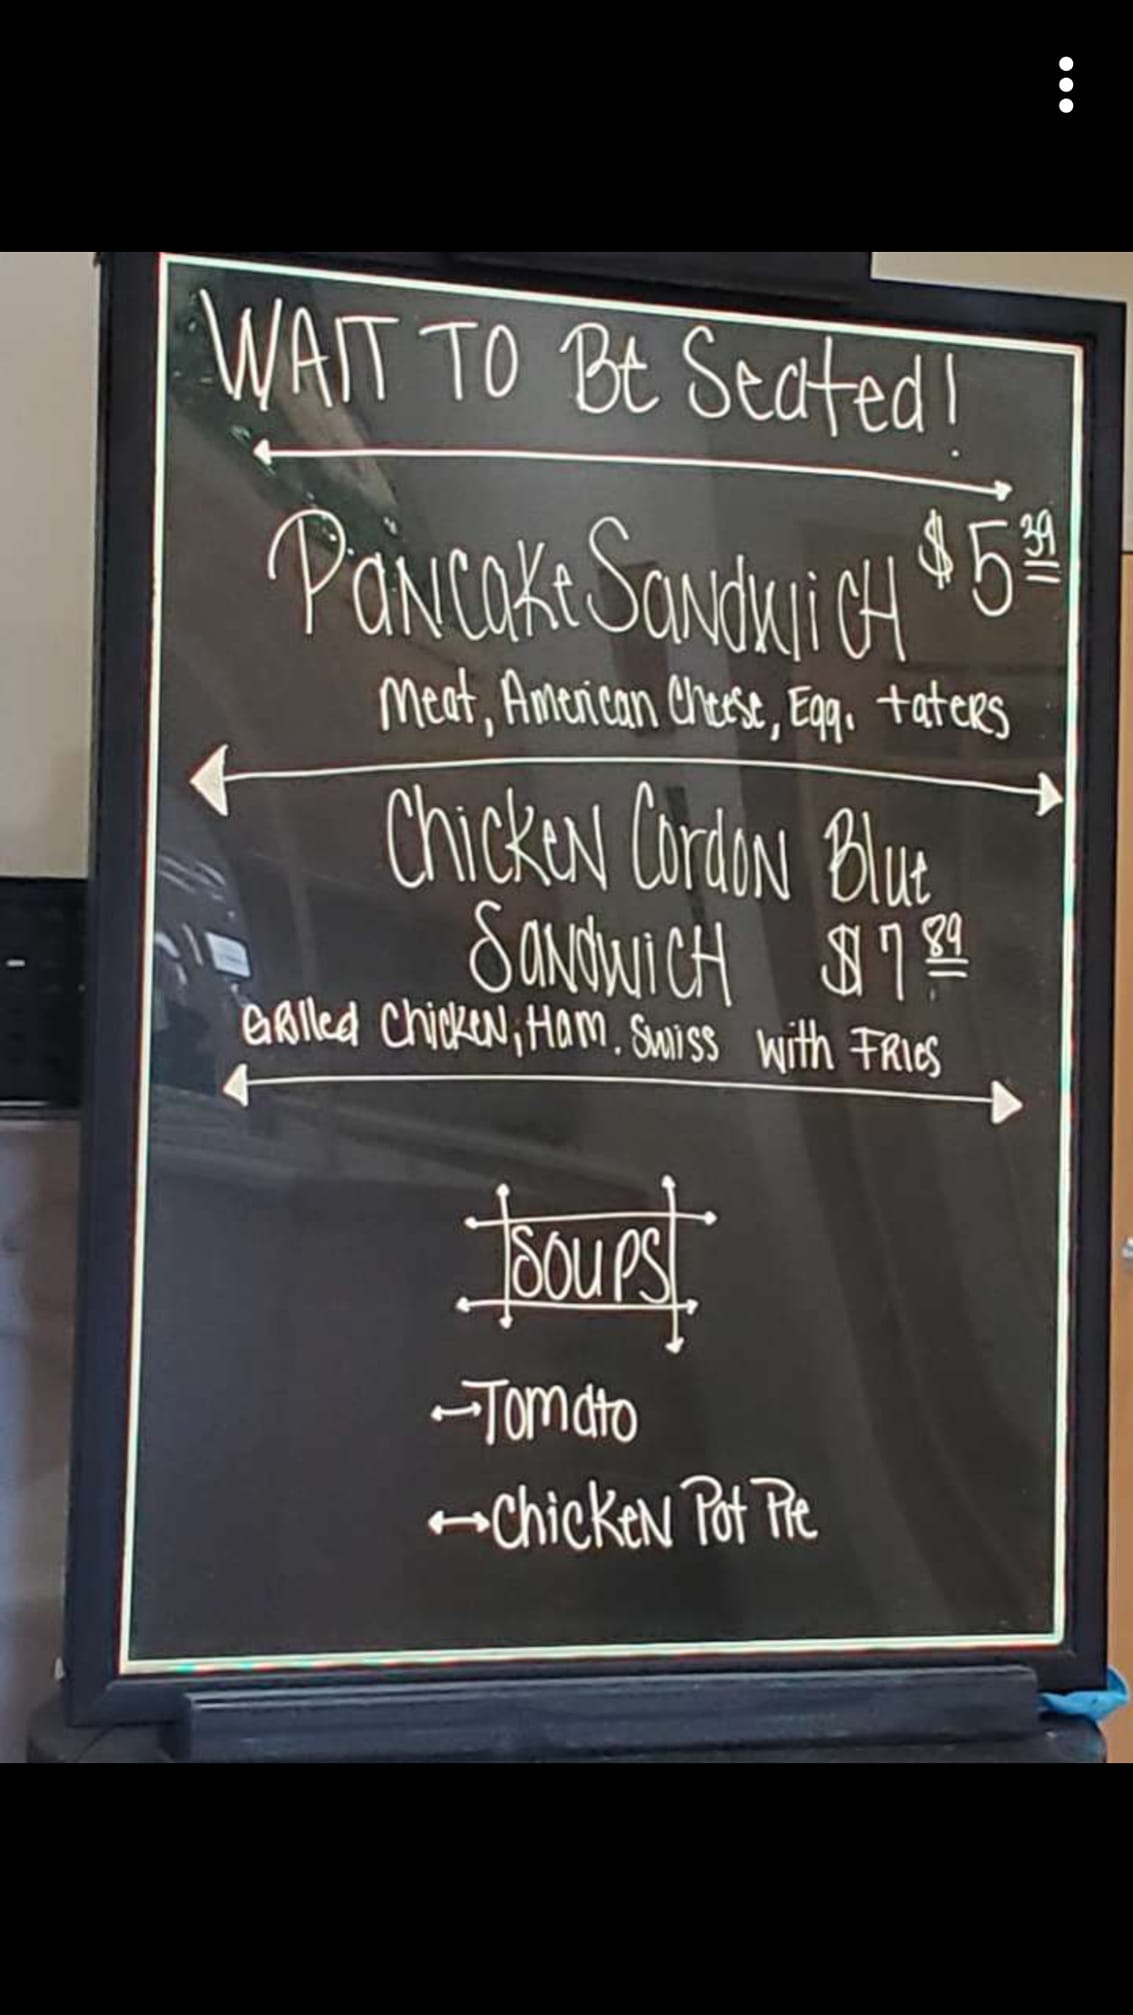 WAIT TO Be Seated!
Pancake Sandwich $5.39
Meat, American Cheese, Egg. taters
Chicken Cordon Blue
Sandwich $7.89
Grilled Chicken, Ham. Swiss with Fries
Soups
Tomato
Chicken Pot Pie